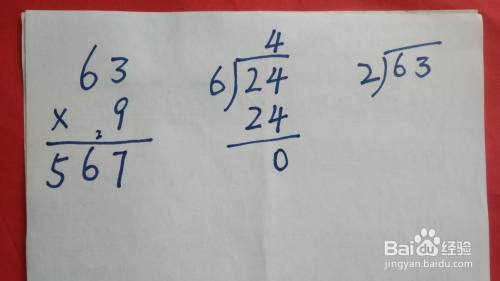 63
× 9
2
567
4
6)24
24
0
2)63
Baidu经验
jingyan.baidu.com